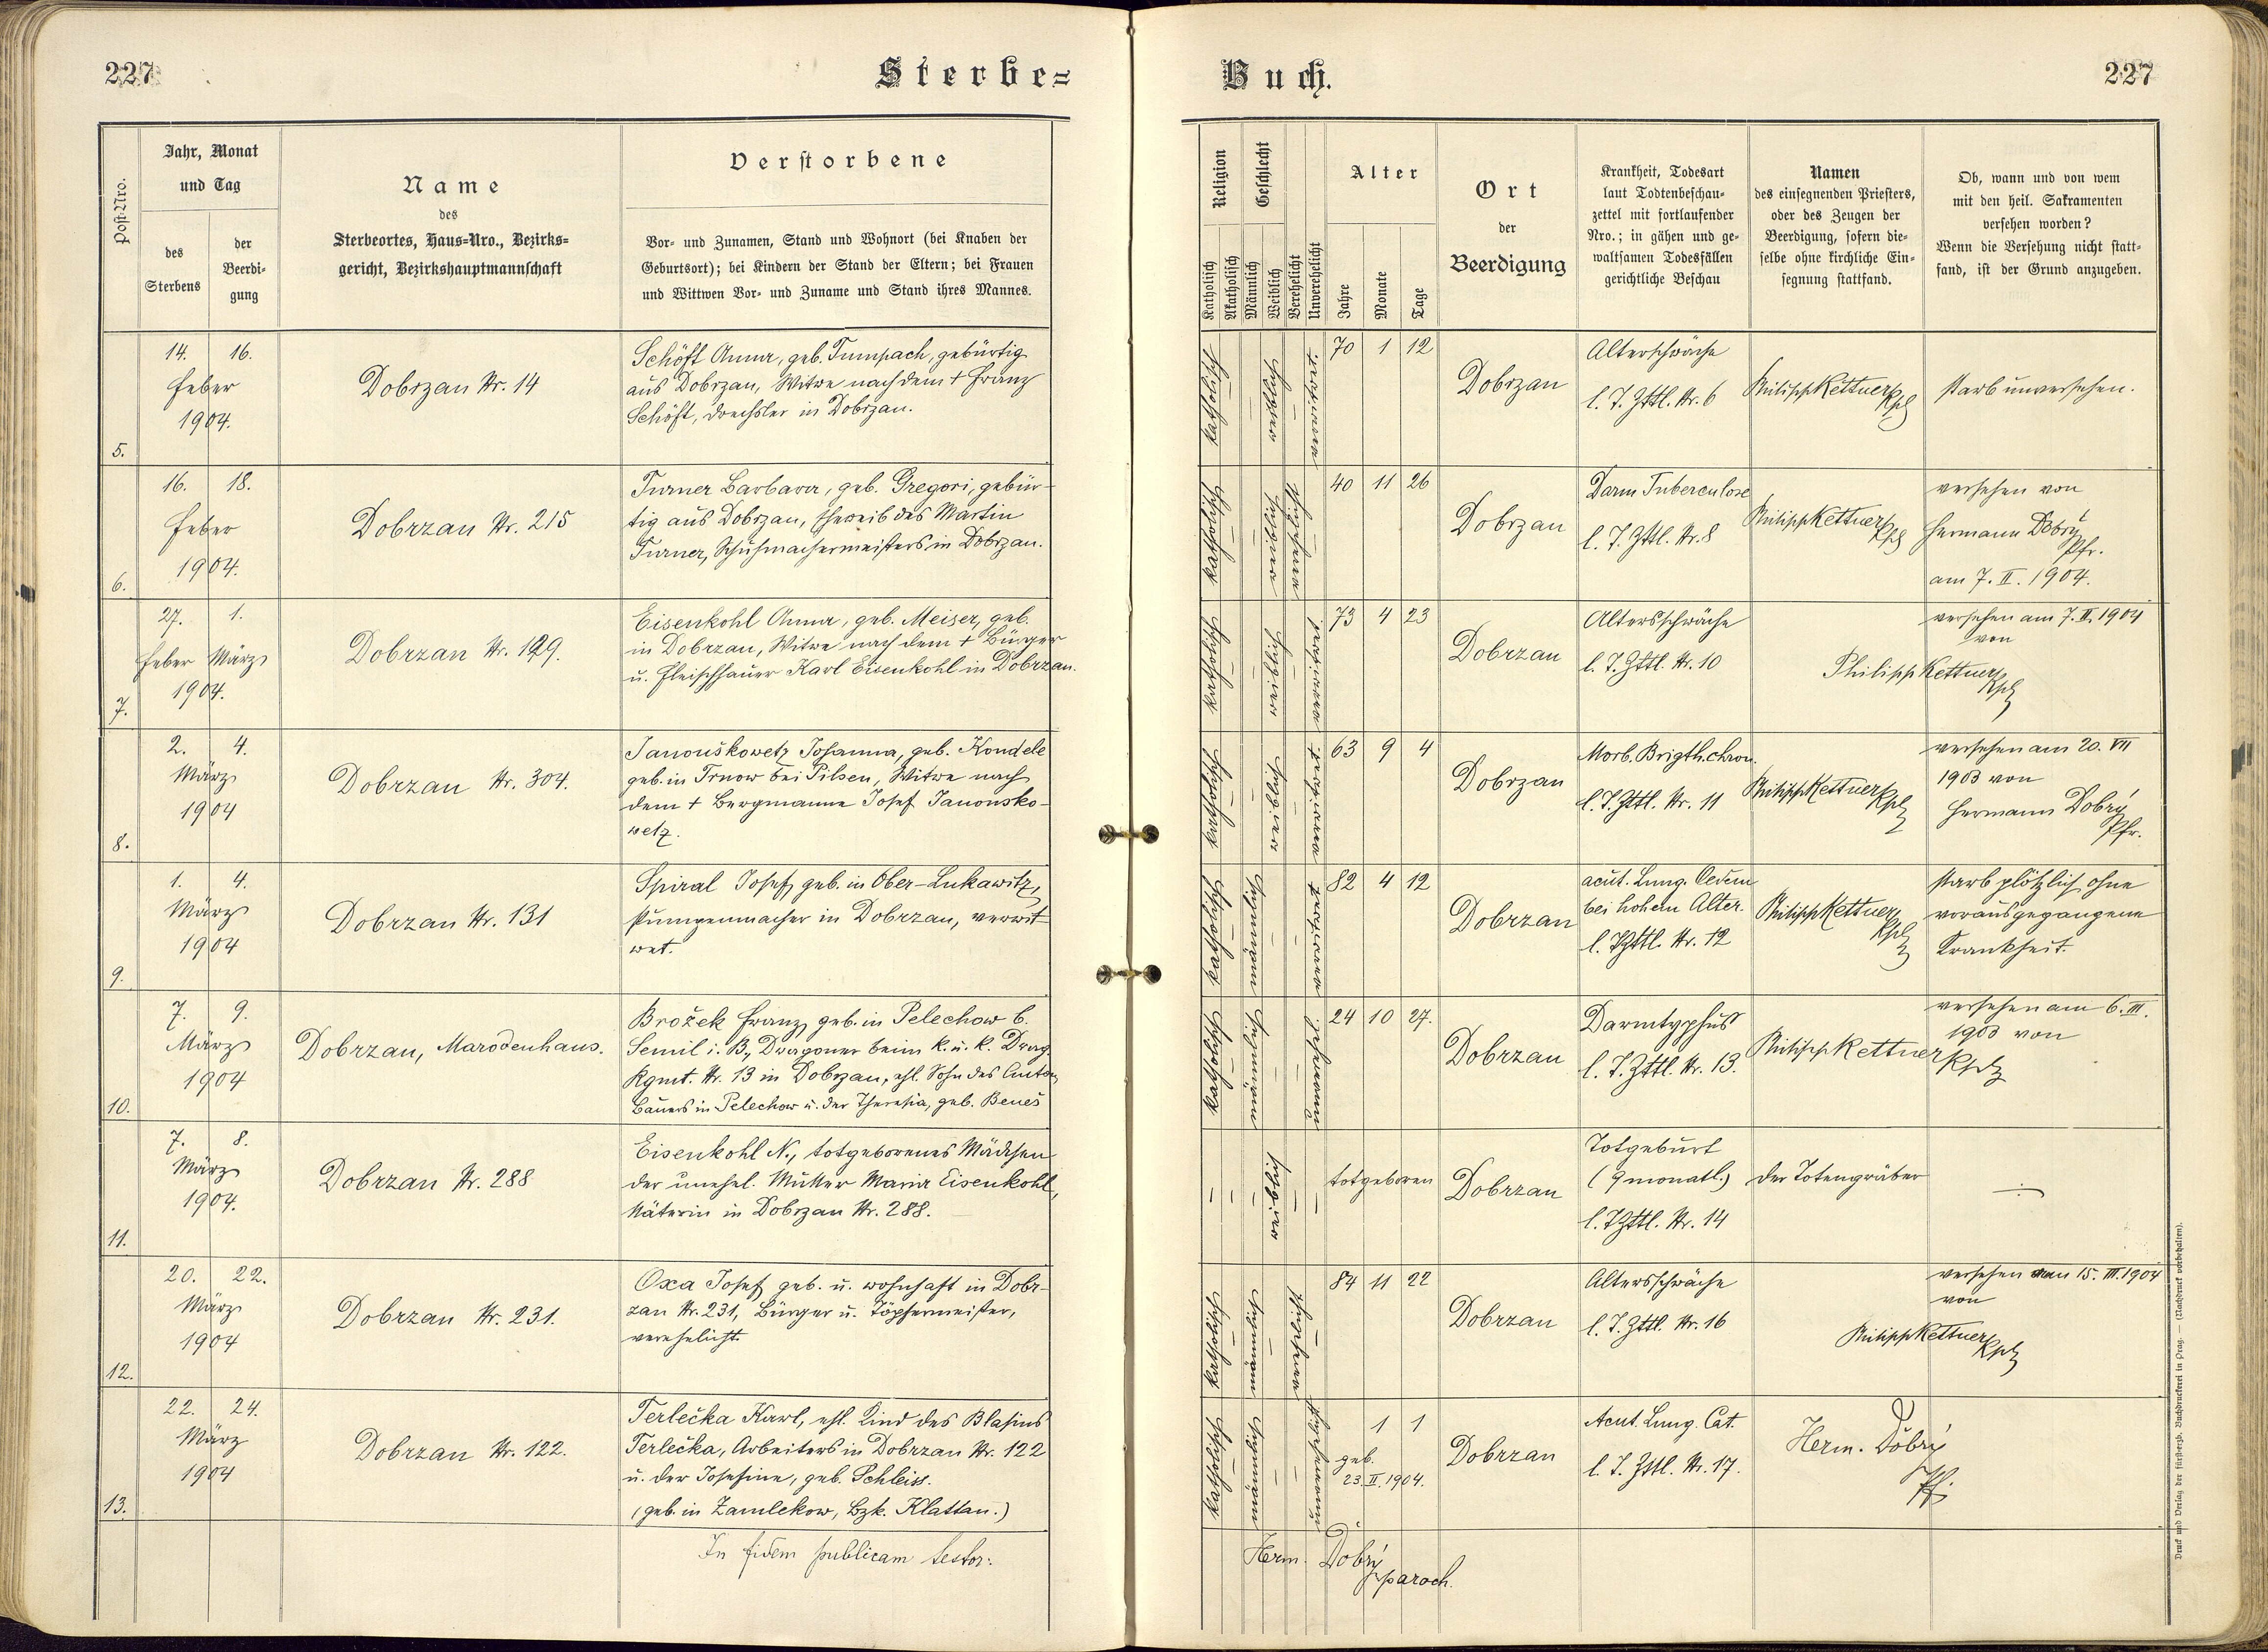 227
Sterbe=
Buch.
227
Post-Nro.
Jahr, Monat
und Tag
des
Sterbens
der
Beerdi-
gung
Name
des
Sterbeortes, Haus=Nro., Bezirks=
gericht, Bezirkshauptmannschaft
Verstorbene
Vor- und Zunamen, Stand und Wohnort (bei Knaben der
Geburtsort); bei Kindern der Stand der Eltern; bei Frauen
und Wittwen Vor- und Zuname und Stand ihres Mannes.
Religion
Katholisch
Akatholisch
Geschlecht
Männlich
Weiblich
Verehelicht
Unverehelicht
Alter
Jahre
Monate
Tage
Ort
der
Beerdigung
Krankheit, Todesart
laut Todtenbeschau-
zettel mit fortlaufender
Nro.; in gähen und ge-
waltsamen Todesfällen
gerichtliche Beschau
Namen
des einsegnenden Priesters,
oder des Zeugen der
Beerdigung, sofern die-
selbe ohne kirchliche Ein-
segnung stattfand.
Ob, wann und von wem
mit den heil. Sakramenten
versehen worden?
Wenn die Versehung nicht statt-
fand, ist der Grund anzugeben.
5.
14. 16.
Feber
1904.
Dobrzan Nr. 14
Schöft Anna, geb. Tumpach, gebürtig
aus Dobrzan, Witwe nach dem † Franz
Schöft, Drechsler in Dobrzan.
katholisch
weiblich
verwitwet
70 1 12
Dobrzan
Alterschwäche
l. T. Zttl. Nr. 6
Philipp Kettner
Kpl
starb unversehen.
6.
16. 18.
Feber
1904.
Dobrzan Nr. 215
Turner Barbara, geb. Gregori, gebür-
tig aus Dobrzan, Eheweib des Martin
Turner, Schuhmachermeisters in Dobrzan.
katholisch
weiblich
verehelicht
40 11 26
Dobrzan
Darm Tuberculose
l. T. Zttl. Nr. 8
Philipp Kettner
Kpl
versehen von
Hermann Dobrý
Pfr.
am 7. II. 1904.
7.
27. 1.
Feber März
1904.
Dobrzan Nr. 129.
Eisenkohl Anna, geb. Meiser, geb.
in Dobrzan, Witwe nach dem † Bürger
u. Fleischhauer Karl Eisenkohl in Dobrzan.
katholisch
weiblich
verwitwet
73 4 23
Dobrzan
Altersschwäche
l. T. Zttl. Nr. 10
versehen am 7. II. 1904
von
Philipp Kettner
Kpl
8.
2. 4.
März
1904
Dobrzan Nr. 304.
Janouškowetz Johanna, geb. Kondele
geb. in Trnow bei Pilsen, Witwe nach
dem † Bergmanne Josef Janousko-
wetz.
katholisch
weiblich
verwitwet
63 9 4
Dobrzan
Morb. Brigth. chron.
l. T. Zttl. Nr. 11
Philipp Kettner
Kpl
versehen am 20. VII
1903 von
Hermann Dobrý
Pfr.
9.
1. 4.
März
1904
Dobrzan Nr. 131
Spiral Josef, geb. in Ober-Lukawitz,
Pumpenmacher in Dobrzan, verwit-
wet.
katholisch
männlich
verwitwet
82 4 12
Dobrzan
acut. Lung. Oedem
bei hohem Alter.
l. T. Zttl. Nr. 12
Philipp Kettner
Kpl
starb plötzlich ohne
vorausgegangene
Krankheit.
10.
7. 9.
März
1904
Dobrzan, Marodenhaus.
Brožek Franz, geb. in Pelechow b.
Semil i. B., Dragoner beim k. u. k. Drag.
Rgmt. Nr. 13 in Dobrzan, ehl. Sohn des Anton,
Bauers in Pelechow u. der Theresia, geb. Beneš
katholisch
männlich
unverehel.
24 10 27.
Dobrzan
Darmtyphus
l. T. Zttl. Nr. 13.
Philipp Kettner
versehen am 6. III.
1903 von
Kpl
11.
7. 8.
März
1904.
Dobrzan Nr. 288
Eisenkohl N., totgeborenes Mädchen
der unehel. Mutter Maria Eisenkohl,
Näterin in Dobrzan Nr. 288.
weiblich
totgeboren
Dobrzan
Totgeburt
(9 monatl.)
l. T. Zttl. Nr. 14
der Totengräber
12.
20. 22.
März
1904
Dobrzan Nr. 231.
Oxa Josef, geb. u. wohnhaft in Dobr-
zan Nr. 231, Bürger u. Töpfermeister,
verehelicht.
katholisch
männlich
verehelicht
84 11 22
Dobrzan
Altersschwäche
l. T. Zttl. Nr. 16
versehen am 15. III. 1904
von
Philipp Kettner
Kpl
13.
22. 24.
März
1904
Dobrzan Nr. 122.
Terlečka Karl, ehl. Kind des Blasius
Terlečka, Arbeiters in Dobrzan Nr. 122
u. der Josefine, geb. Schleiss.
(geb. in Zamlekow, Bzk. Klattau.)
katholisch
männlich
unverehelicht
1 1
geb.
23. II. 1904.
Dobrzan
Acut. Lung. Cat.
l. T. Zttl. Nr. 17.
Herm. Dobrý
Pf.
In fidem publicam testor:
Herm. Dobrý
paroch.
Druck und Verlag der fürsterzb. Buchdruckerei in Prag. — (Nachdruck vorbehalten).